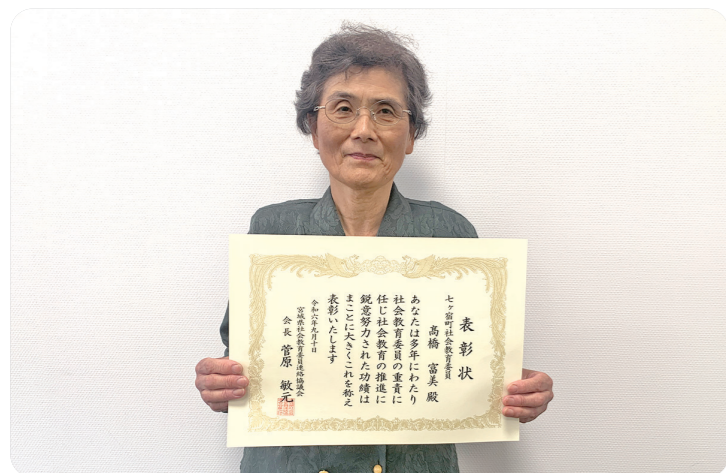 表彰状
七ヶ宿町社会教育委員
髙橋 富美 殿
あなたは多年にわたり
社会教育委員の重責に
任じ社会教育の推進に
鋭意努力された功績は
まことに大きくこれを称え
表彰いたします
令和六年九月十日
宮城県社会教育委員連絡協議会
会長 菅原 敏元